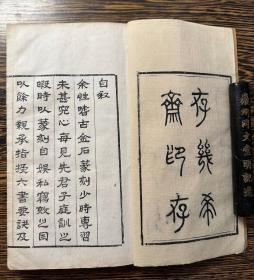 存幾希
齋印存
自叙
余性嗜古金石篆刻少時專習
未甚究心每見先君子庭訓之
暇時以篆刻自娛私竊效之因
以餘力親承指授六書要訣及